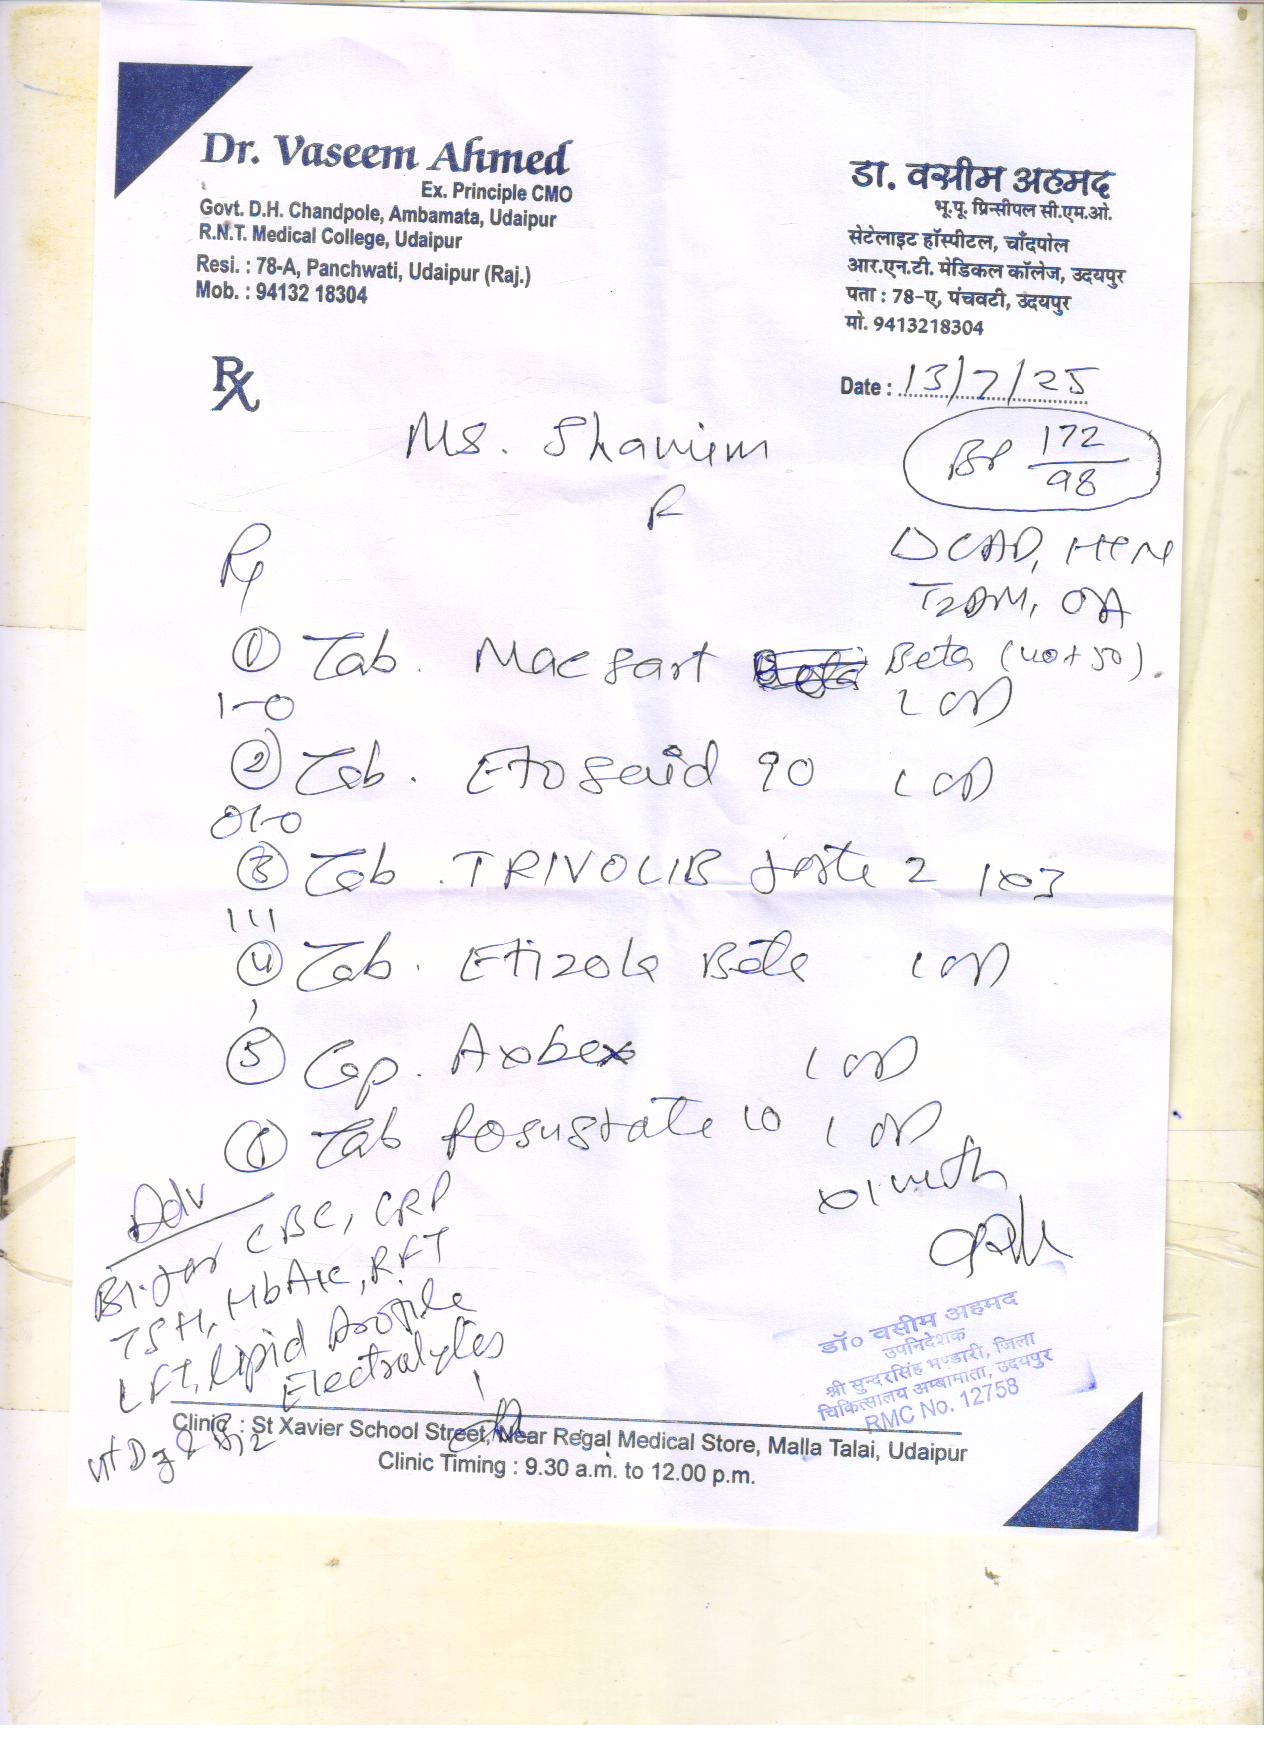 Dr. Vaseem Ahmed
Ex. Principle CMO
Govt. D.H. Chandpole, Ambamata, Udaipur
R.N.T. Medical College, Udaipur
Resi. : 78-A, Panchwati, Udaipur (Raj.)
Mob. : 94132 18304
डा. वसीम अहमद
भू.पू. प्रिन्सीपल सी.एम.ओ.
सेटेलाइट हॉस्पीटल, चाँदपोल
आर.एन.टी. मेडिकल कॉलेज, उदयपुर
पता : 78-ए, पंचवटी, उदयपुर
मो. 9413218304
Rx
Date : 13/7/25
Ms. Shamim
F
BP 172/98
Δ CAD, HTN
T2DM, OA
Rx
① Tab. Macsart Beta (40+50).
1 OD
1-0
② Tab. Etosaid 90 1 OD
01-0
③ Tab. TRIVOLIB forte 2 1x3
111
④ Tab. Etizola Beta 1 OD
⑤ Cap. 1 OD
⑥ Tab Rosustate 10 1 OD
x1 month
Adv
Bl. for CBC, CRP
TSH, HbA1c, RFT
LFT, Lipid Profile
Electrolytes
Vit D3 & B12
डॉ० वसीम अहमद
उपनिदेशक
श्री सुन्दरसिंह भण्डारी, जिला
चिकित्सालय अम्बामाता, उदयपुर
RMC No. 12758
Clinic : St Xavier School Street, Near Regal Medical Store, Malla Talai, Udaipur
Clinic Timing : 9.30 a.m. to 12.00 p.m.